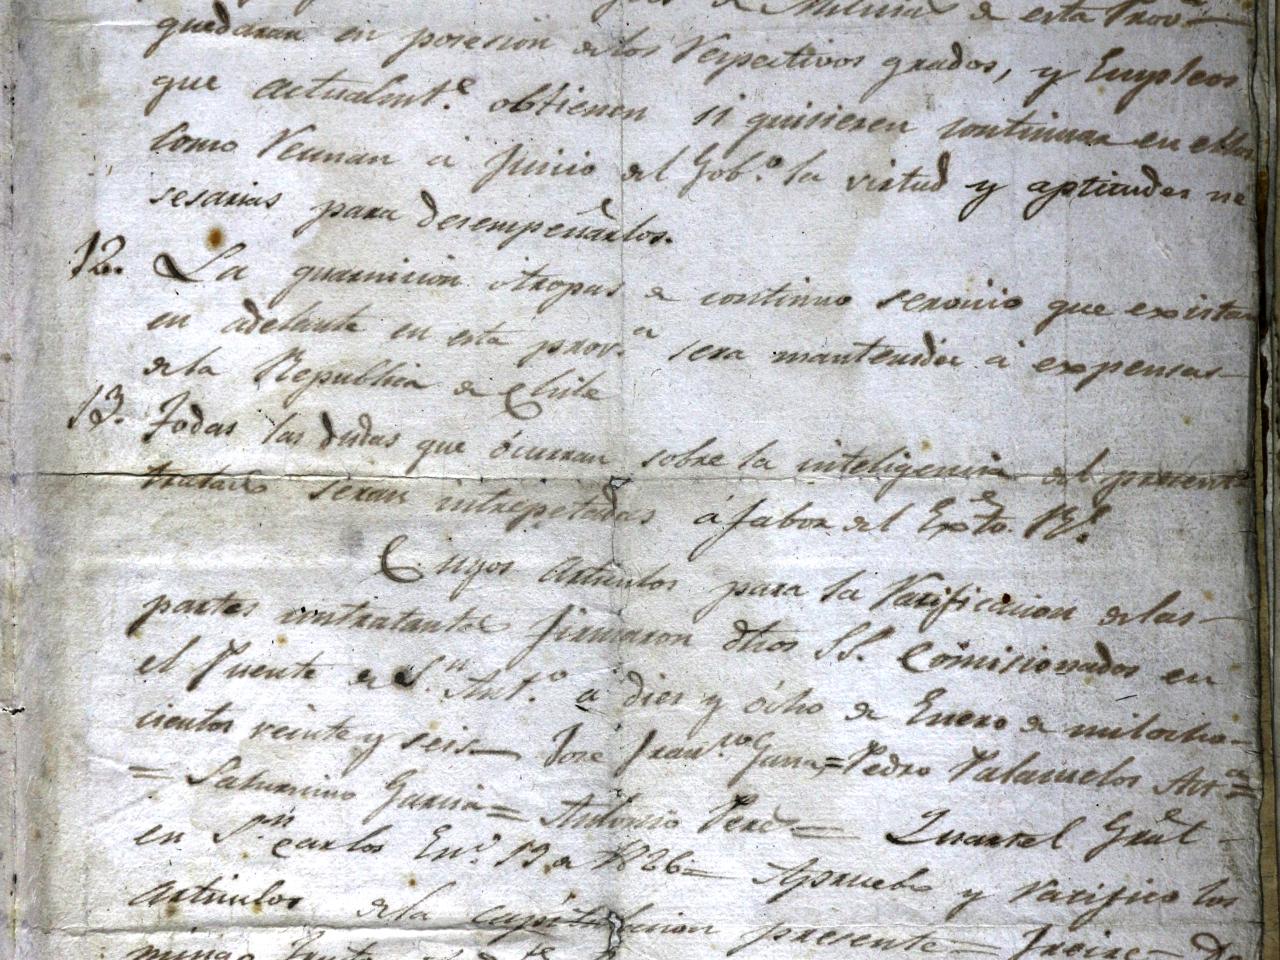 de Milicias de esta Prov.a
quedaran en posesion de los Respectivos grados, y Empleos
que actualmt.e obtienen si quisieren continuar en ellos
como Reunan á juicio del Gob.o la virtud y aptitudes ne
sesarias para desempeñarlos.
12. La guarnicion o tropas de continuo servicio que existan
en adelante en esta prov.a sera mantenida á expensas
de la Republica de Chile
13. Todas las dudas que ócurran sobre la inteligencia del presente
tratado seran intrepetadas á fabor del Exto. Rl.
Cuyos articulos para la Ratificacion de las
partes contratantes firmaron dhos SS. Comisionados en
el Fuente de S.n Ant.o á diez y ócho de Enero de mil ocho
cientos veinte y seis = José Fran.co Gana = Pedro Palazuelos Ast.a =
= Saturnino Garcia = Antonio Perez = Quartel Gral
en S.n Carlos En.o 19 de 1826 = Apruebo y Ratifico los
articulos de la capitulacion presente = Freire =